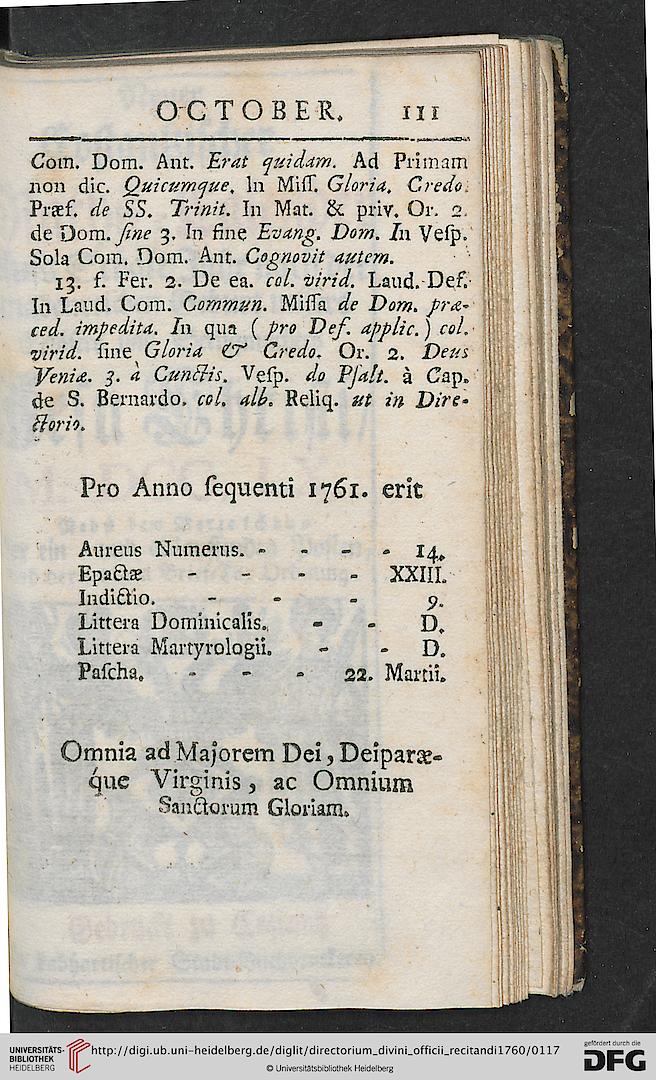 OCTOBER. 111
Com. Dom. Ant. Erat quidam. Ad Primam
non dic. Quicumque. In Miſſ. Gloria. Credo.
Præf. de SS. Trinit. In Mat. & priv. Or. 2.
de Dom. ſine 3. In fine Evang. Dom. In Veſp.
Sola Com. Dom. Ant. Cognovit autem.
13. f. Fer. 2. De ea. col. virid. Laud. Def.
In Laud. Com. Commun. Miſſa de Dom. præ-
ced. impedita. In qua (pro Def. applic.) col.
virid. ſine Gloria & Credo. Or. 2. Deus
Veniæ. 3. à Cunctis. Veſp. do Pſalt. à Cap.
de S. Bernardo. col. alb. Reliq. ut in Dire-
ctorio.
Pro Anno ſequenti 1761. erit
Aureus Numerus. - - - - 14.
Epactæ - - - - XXIII.
Indictio. - - - 9.
Littera Dominicalis. - - D.
Littera Martyrologii. - - D.
Paſcha. - - - 22. Martii.
Omnia ad Majorem Dei, Deiparæ-
que Virginis, ac Omnium
Sanctorum Gloriam.
UNIVERSITÄTS-
BIBLIOTHEK
HEIDELBERG
http://digi.ub.uni-heidelberg.de/diglit/directorium_divini_officii_recitandi1760/0117
© Universitätsbibliothek Heidelberg
gefördert durch die
DFG